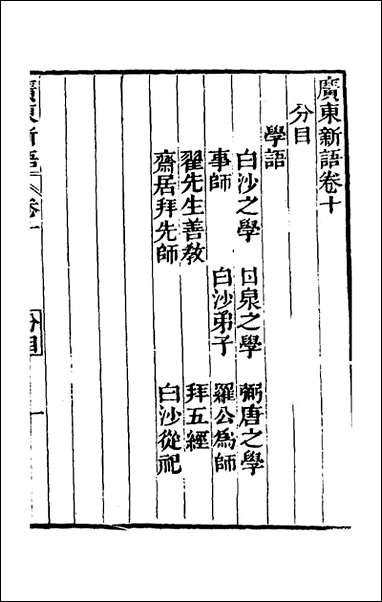 廣東新語卷十
分目
學語
白沙之學 甘泉之學 弼唐之學
事師 白沙弟子 羅公爲師
翟先生善敎 拜五經
齋居拜先師 白沙從祀
廣東新語 卷十 分目 一